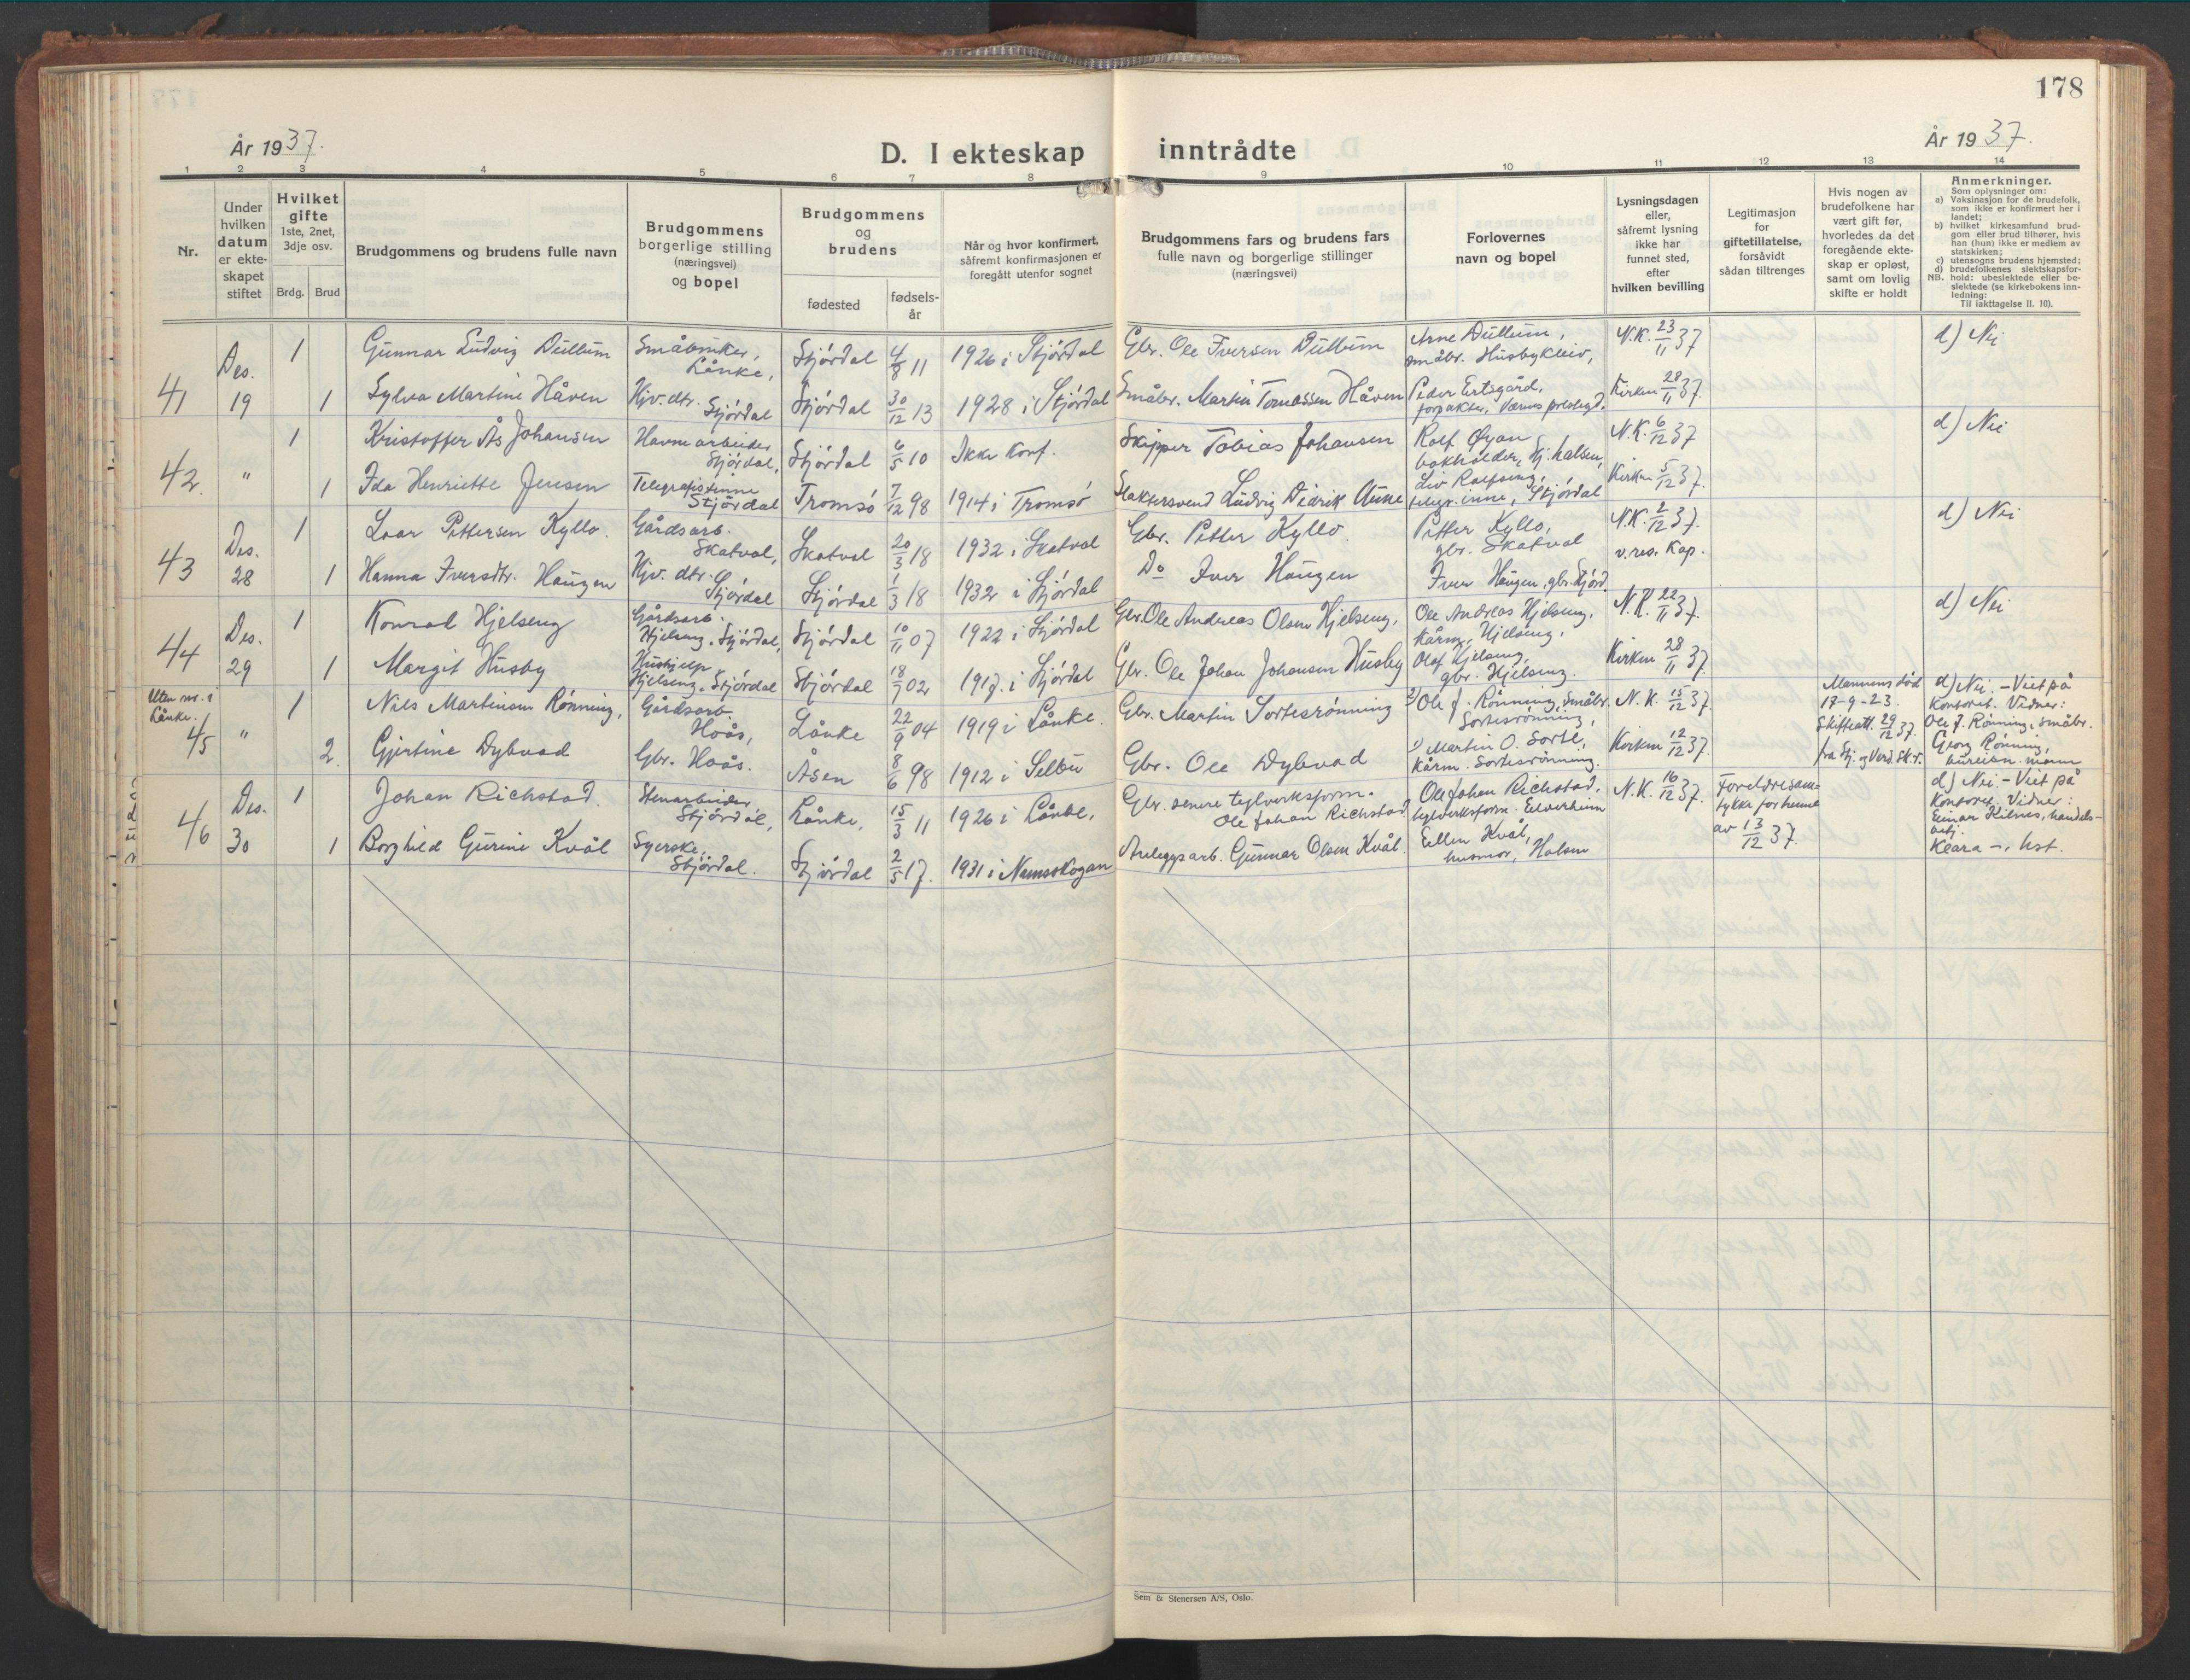 178
År 1937.
D. I ekteskap inntrådte
År 1937.
1 2 3 4 5 6 7 8 9 10 11 12 13 14
Nr.
Under
hvilken
datum
er ekte-
skapet
stiftet
Hvilket
gifte
1ste, 2net,
3dje osv.
Brdg. Brud
Brudgommens og brudens fulle navn
Brudgommens
borgerlige stilling
(næringsvei)
og bopel
Brudgommens
og
brudens
fødested
fødsels-
år
Når og hvor konfirmert,
såfremt konfirmasjonen er
foregått utenfor sognet
Brudgommens fars og brudens fars
fulle navn og borgerlige stillinger
(næringsvei)
Forlovernes
navn og bopel
Lysningsdagen
eller,
såfremt lysning
ikke har
funnet sted,
efter
hvilken bevilling
Legitimasjon
for
giftetillatelse,
forsåvidt
sådan tiltrenges
Hvis nogen av
brudefolkene har
vært gift før,
hvorledes da det
foregående ekte-
skap er opløst,
samt om lovlig
skifte er holdt
Anmerkninger.
Som oplysninger om:
a) Vaksinasjon for de brudefolk,
som ikke er konfirmert her i
landet;
b) hvilket kirkesamfund brud-
gom eller brud tilhører, hvis
han (hun) ikke er medlem av
statskirken;
c) utensogns brudens hjemsted;
d) brudefolkenes slektskapsfor-
NB. hold: ubeslektede eller be-
slektede (se kirkebokens inn-
ledning:
Til iakttagelse II. 10).
41 Des. 19
1 Gunnar Ludvig Dullum Småbruker, Lånke, Stjørdal 4/8 11 1926 i Stjørdal Gbr. Ole Iversen Dullum Arne Dullum, småbr. Husbykleiv, N.K. 23/11 37 d) Nei
1 Sylva Martine Håven Hjv. dtr. Stjørdal Stjørdal 30/12 13 1928 i Stjørdal Småbr. Martin Tomassen Håven Peder Ertsgård, forpakter, Værnes prestegd. Kirken 28/11 37.
42. "
1 Kristoffer Ås Johansen Havnearbeider Stjørdal, Stjørdal 6/5 10 Ikke konf. Skipper Tobias Johansen Rolf Øyan bokholder, Stj. halsen, N.K. 6/12 37 d) Nei
1 Ida Henriette Jensen Telegrafistinne Stjørdal Tromsø 7/12 98 1914 i Tromsø Slaktersvend Ludvig Didrik Aune Liv Rolfseng, telegr. inne, Stjørdal Kirken 5/12 37.
43 Des. 28
1 Ivar Pettersen Kyllo. Gårdsarb. Skatval, Skatval 20/3 18 1932 i Skatval Gbr. Petter Kyllo. Petter Kyllo, gbr. Skatval N.K. 2/12 37. v. res. Kap. d) Nei
1 Hanna Iversdtr. Haugen Hjv. dtr. Stjørdal Stjørdal 1/3 18 1932 i Stjørdal Do Iver Haugen Iver Haugen, gbr. Stjørd.
44 Des. 29
1 Konrad Hjelseng Gårdsarb. Hjelseng. Stjørdal, Stjørdal 10/11 07 1922 i Stjørdal Gbr. Ole Andreas Olsen Hjelseng. Ole Andreas Hjelseng, kårm, Hjelseng, N.K. 22/11 37. d) Nei
1 Margit Husby Hushjelp Hjelseng. Stjørdal Stjørdal 18/7 02 1917. i Stjørdal Gbr. Ole Johan Johansen Husby Olaf Hjelseng, gbr. Hjelseng. Kirken 28/11 37.
Uten nr. i Lånke.
45 "
1 Nils Martinsen Rønning, Gårdsarb. Hoås, Lånke 22/9 04 1919 i Lånke. Gbr. Martin Sortesrønning 2) Ole J. Rønning, småbr. Sortesrønning, N.K. 15/12 37. Mannens død 17-9-23. d) Nei. - Viet på kontoret. Vidner:
2. Gjertine Dybvad Gbr. Hoås. Åsen 8/6 98 1912 i Selbu Gbr. Ole Dybvad 1) Martin O. Sorte, kårm. Sortesrønning. Kirken 12/12 37. Skifteatt. 29/12 37. fra Stj. og Verd. sk.r. Ole J. Rønning, småbr. Georg Rønning, bureisn. mann
46 Des. 30
1 Johan Richstad. Stenarbeider, Stjørdal, Lånke, 15/3 11 1926 i Lånke, Gbr. senere teglverksform. Ole Johan Richstad Ole Johan Richstad, teglverksform. N.K. 16/12 37. Foreldresam- tykke for henne av 13/12 37. d) Nei - Viet på kontoret. Vidner:
1 Borghild Gurine Kvål Syerske, Stjørdal. Stjørdal 2/5 17. 1931 i Namsskogan Anleggsarb. Gunnar Olsen Kvål. Ellen Kvål, husmor, Halsen Einar Kilnes, handels- betj. Klara -, hst.
Sem & Stenersen A/S, Oslo.